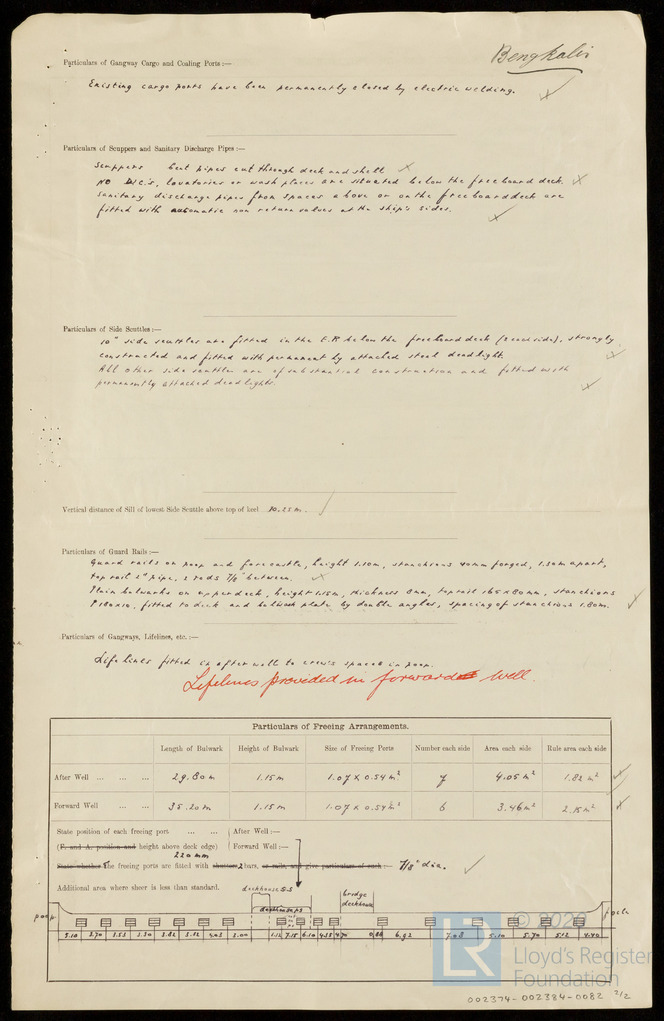 Bengkalis
Particulars of Gangway Cargo and Coaling Ports:—
Existing cargo ports have been permanently closed by electric welding.
Particulars of Scuppers and Sanitary Discharge Pipes:—
Scuppers bent pipes cut through deck and shell
No W.C.'s, lavatories or wash places are situated below the freeboard deck.
Sanitary discharge pipes from spaces above or on the freeboard deck are
fitted with automatic non return valves at the ship's sides.
Particulars of Side Scuttles:—
10" side scuttles are fitted in the E.R. below the freeboard deck (2 each side), strongly
constructed and fitted with permanent by attached steel deadlight.
All other side scuttles are of substantial construction and fitted with
permanently attached deadlights.
Vertical distance of Sill of lowest Side Scuttle above top of keel 10.25 m.
Particulars of Guard Rails:—
Guard rails on poop and forecastle, height 1.10m, stanchions 40mm forged, 1.50m apart,
top rail 2" pipe, 2 rods 7/8" between.
Plain bulwarks on upper deck, height 1.15m, thickness 8mm, toprail 165x80mm, stanchions
180x10, fitted to deck and bulwark plate by double angles, spacing of stanchions 1.80m.
Particulars of Gangways, Lifelines, etc.:—
Life lines fitted in after well to crew's spaces in poop.
Lifelines provided in forward well.
Particulars of Freeing Arrangements.
Length of Bulwark Height of Bulwark Size of Freeing Ports Number each side Area each side Rule area each side
After Well ... ... ... 29.80m 1.15m 1.07 x 0.54 m² 7 4.05 m² 1.82 m²
Forward Well ... ... 35.20m 1.15m 1.07 x 0.54 m² 6 3.46 m² 2.15 m²
State position of each freeing port ... ... After Well:—
(F. and A. position and height above deck edge) Forward Well:—
220 mm
State whether the freeing ports are fitted with shutters 2 bars, or rails, and give particulars of such:— 7/8" dia.
Additional area where sheer is less than standard.
deckhouse SS
deckhouse PS
bridge deckhouse
poop
fock
5.10 2.70 3.55 3.30 3.82 3.82 4.03 2.00 1.12 7.15 6.10 4.35 4.70 0.88 6.92 7.08 5.10 5.70 5.12 4.40
© 2020
LR
Lloyd's Register
Foundation
002374-002384-0082 2/2